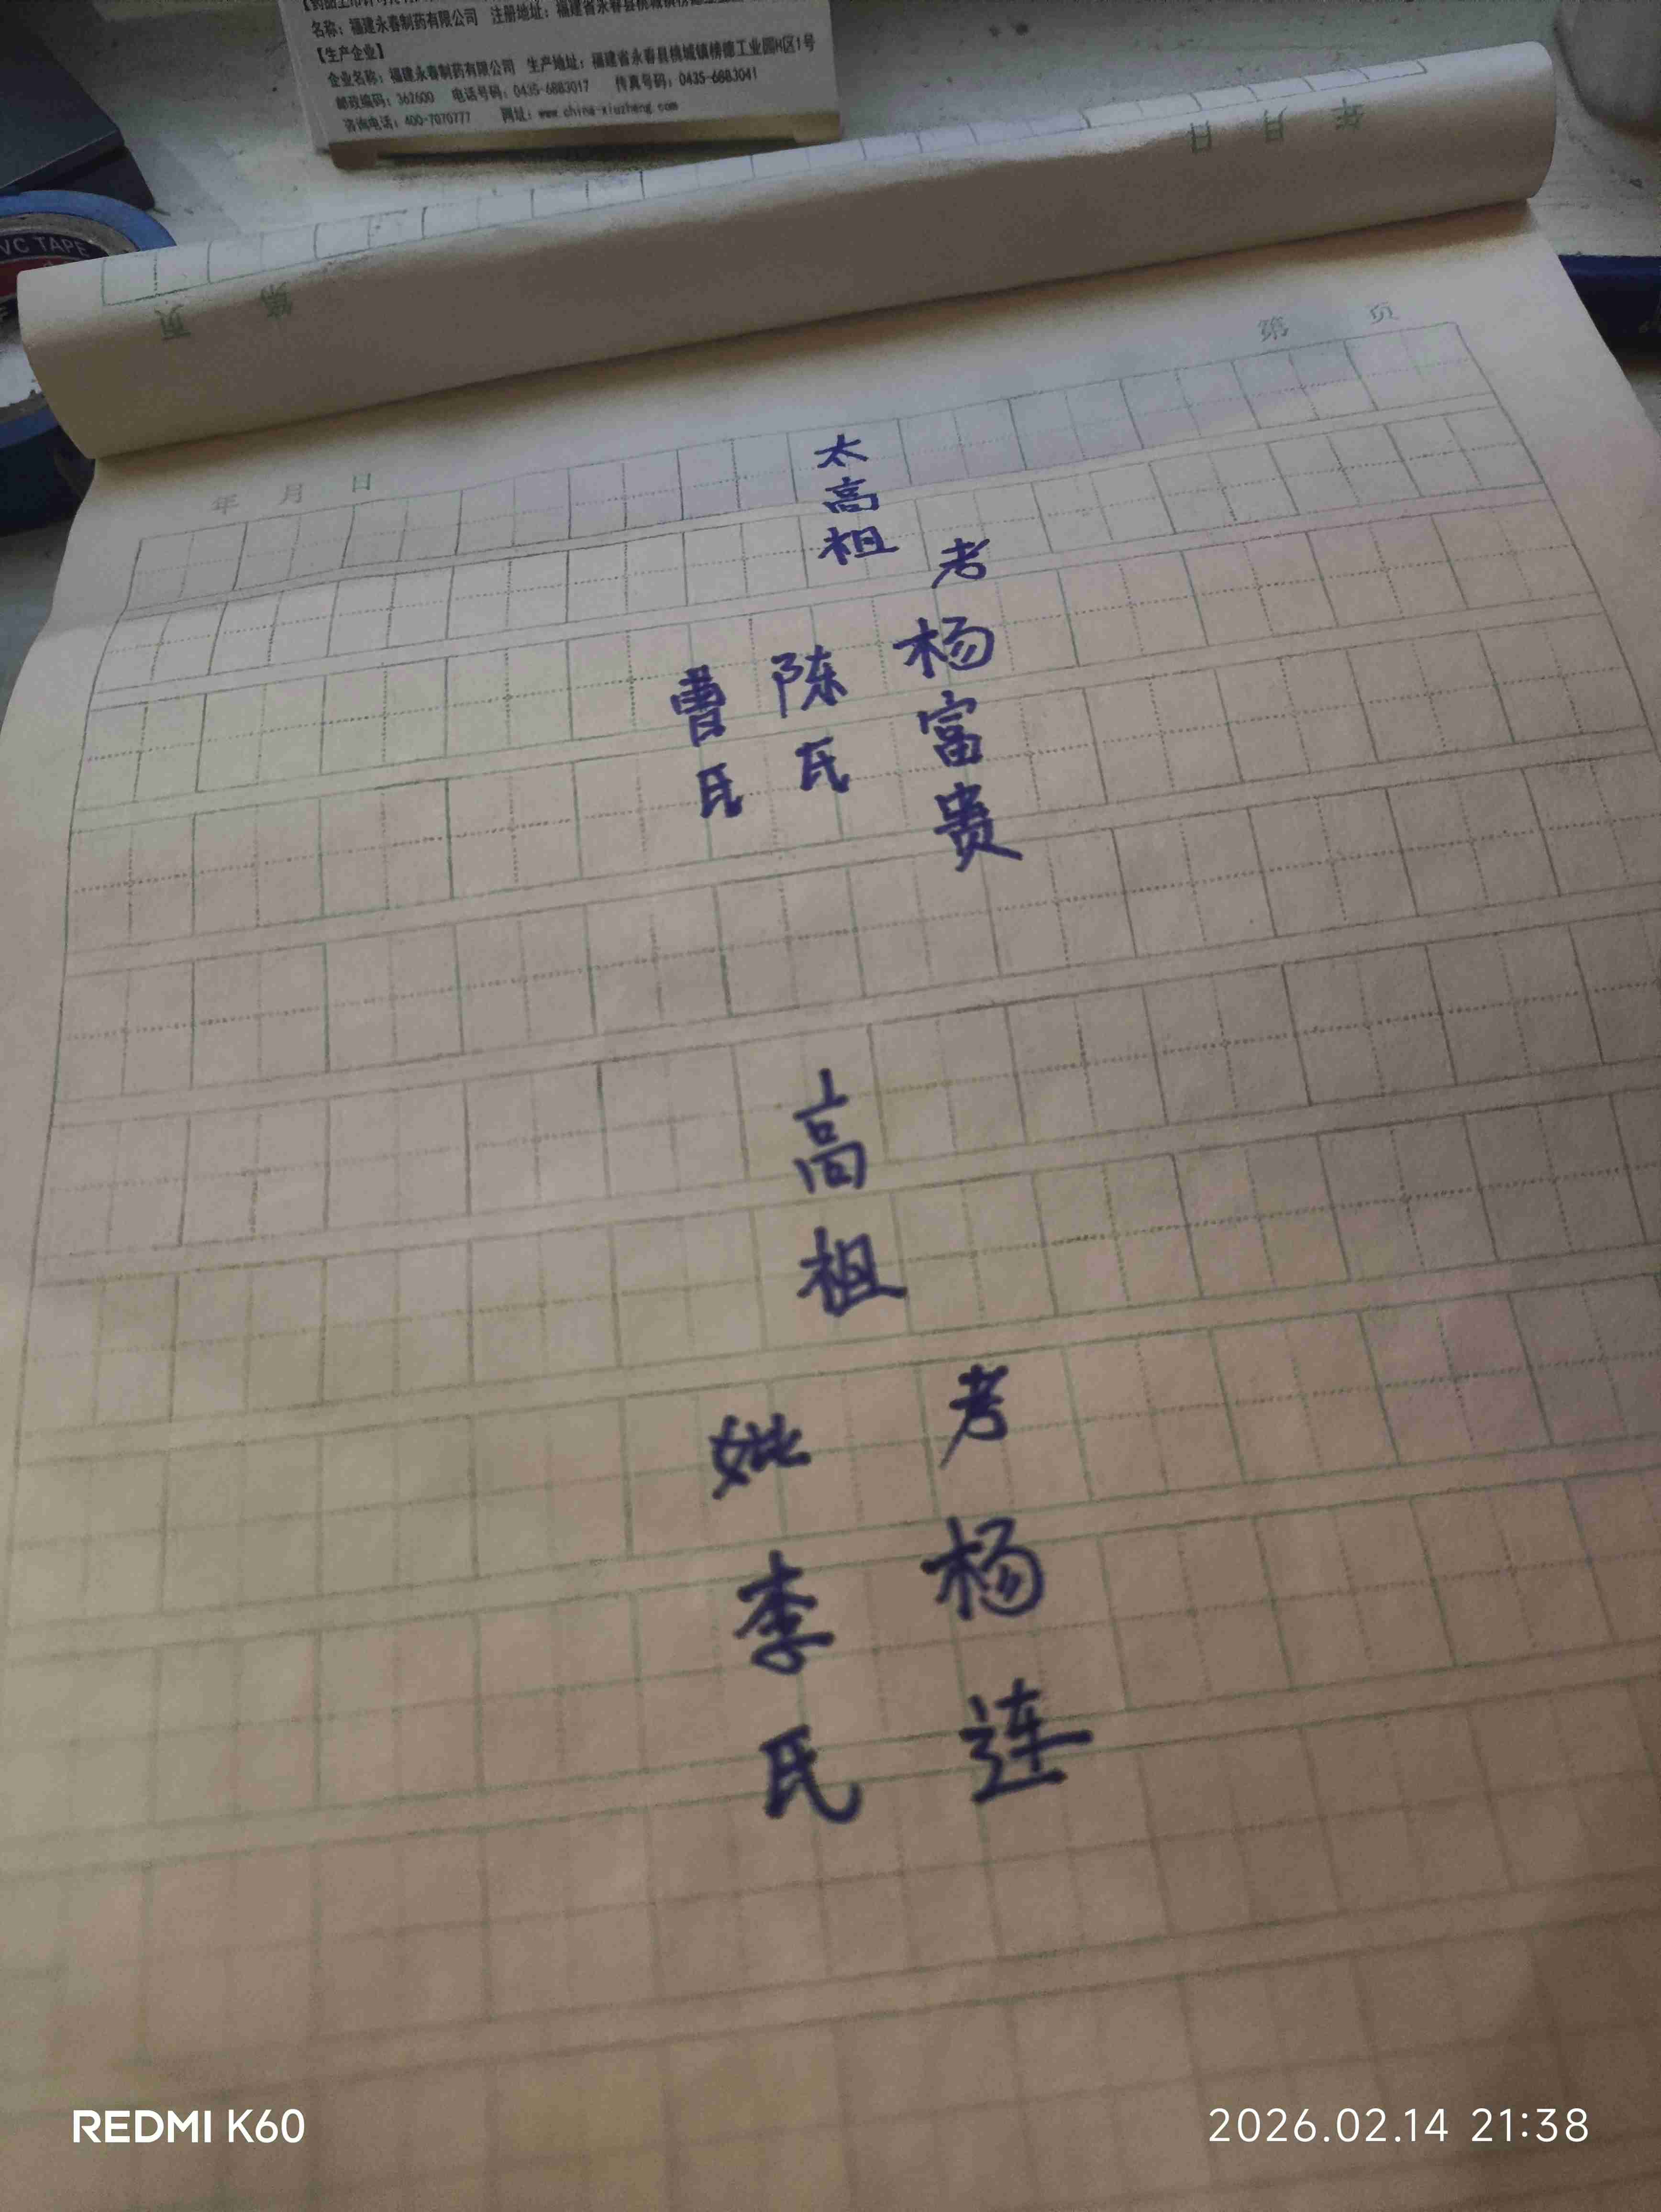 名称：福建永春制药有限公司 注册地址：福建省永春县桃城镇榜德工业
【生产企业】
企业名称：福建永春制药有限公司 生产地址：福建省永春县桃城镇榜德工业园H区1号
邮政编码：362600 电话号码：0435-6883017 传真号码：0435-6883041
咨询电话：400-7070777 网址：www.china-xiuzheng.com
VC TAPE
年 月 日
第 页
第 页
年 月 日
太高祖
考
杨富贵
陈氏
曹氏
高祖
考杨连
妣李氏
REDMI K60
2026.02.14 21:38